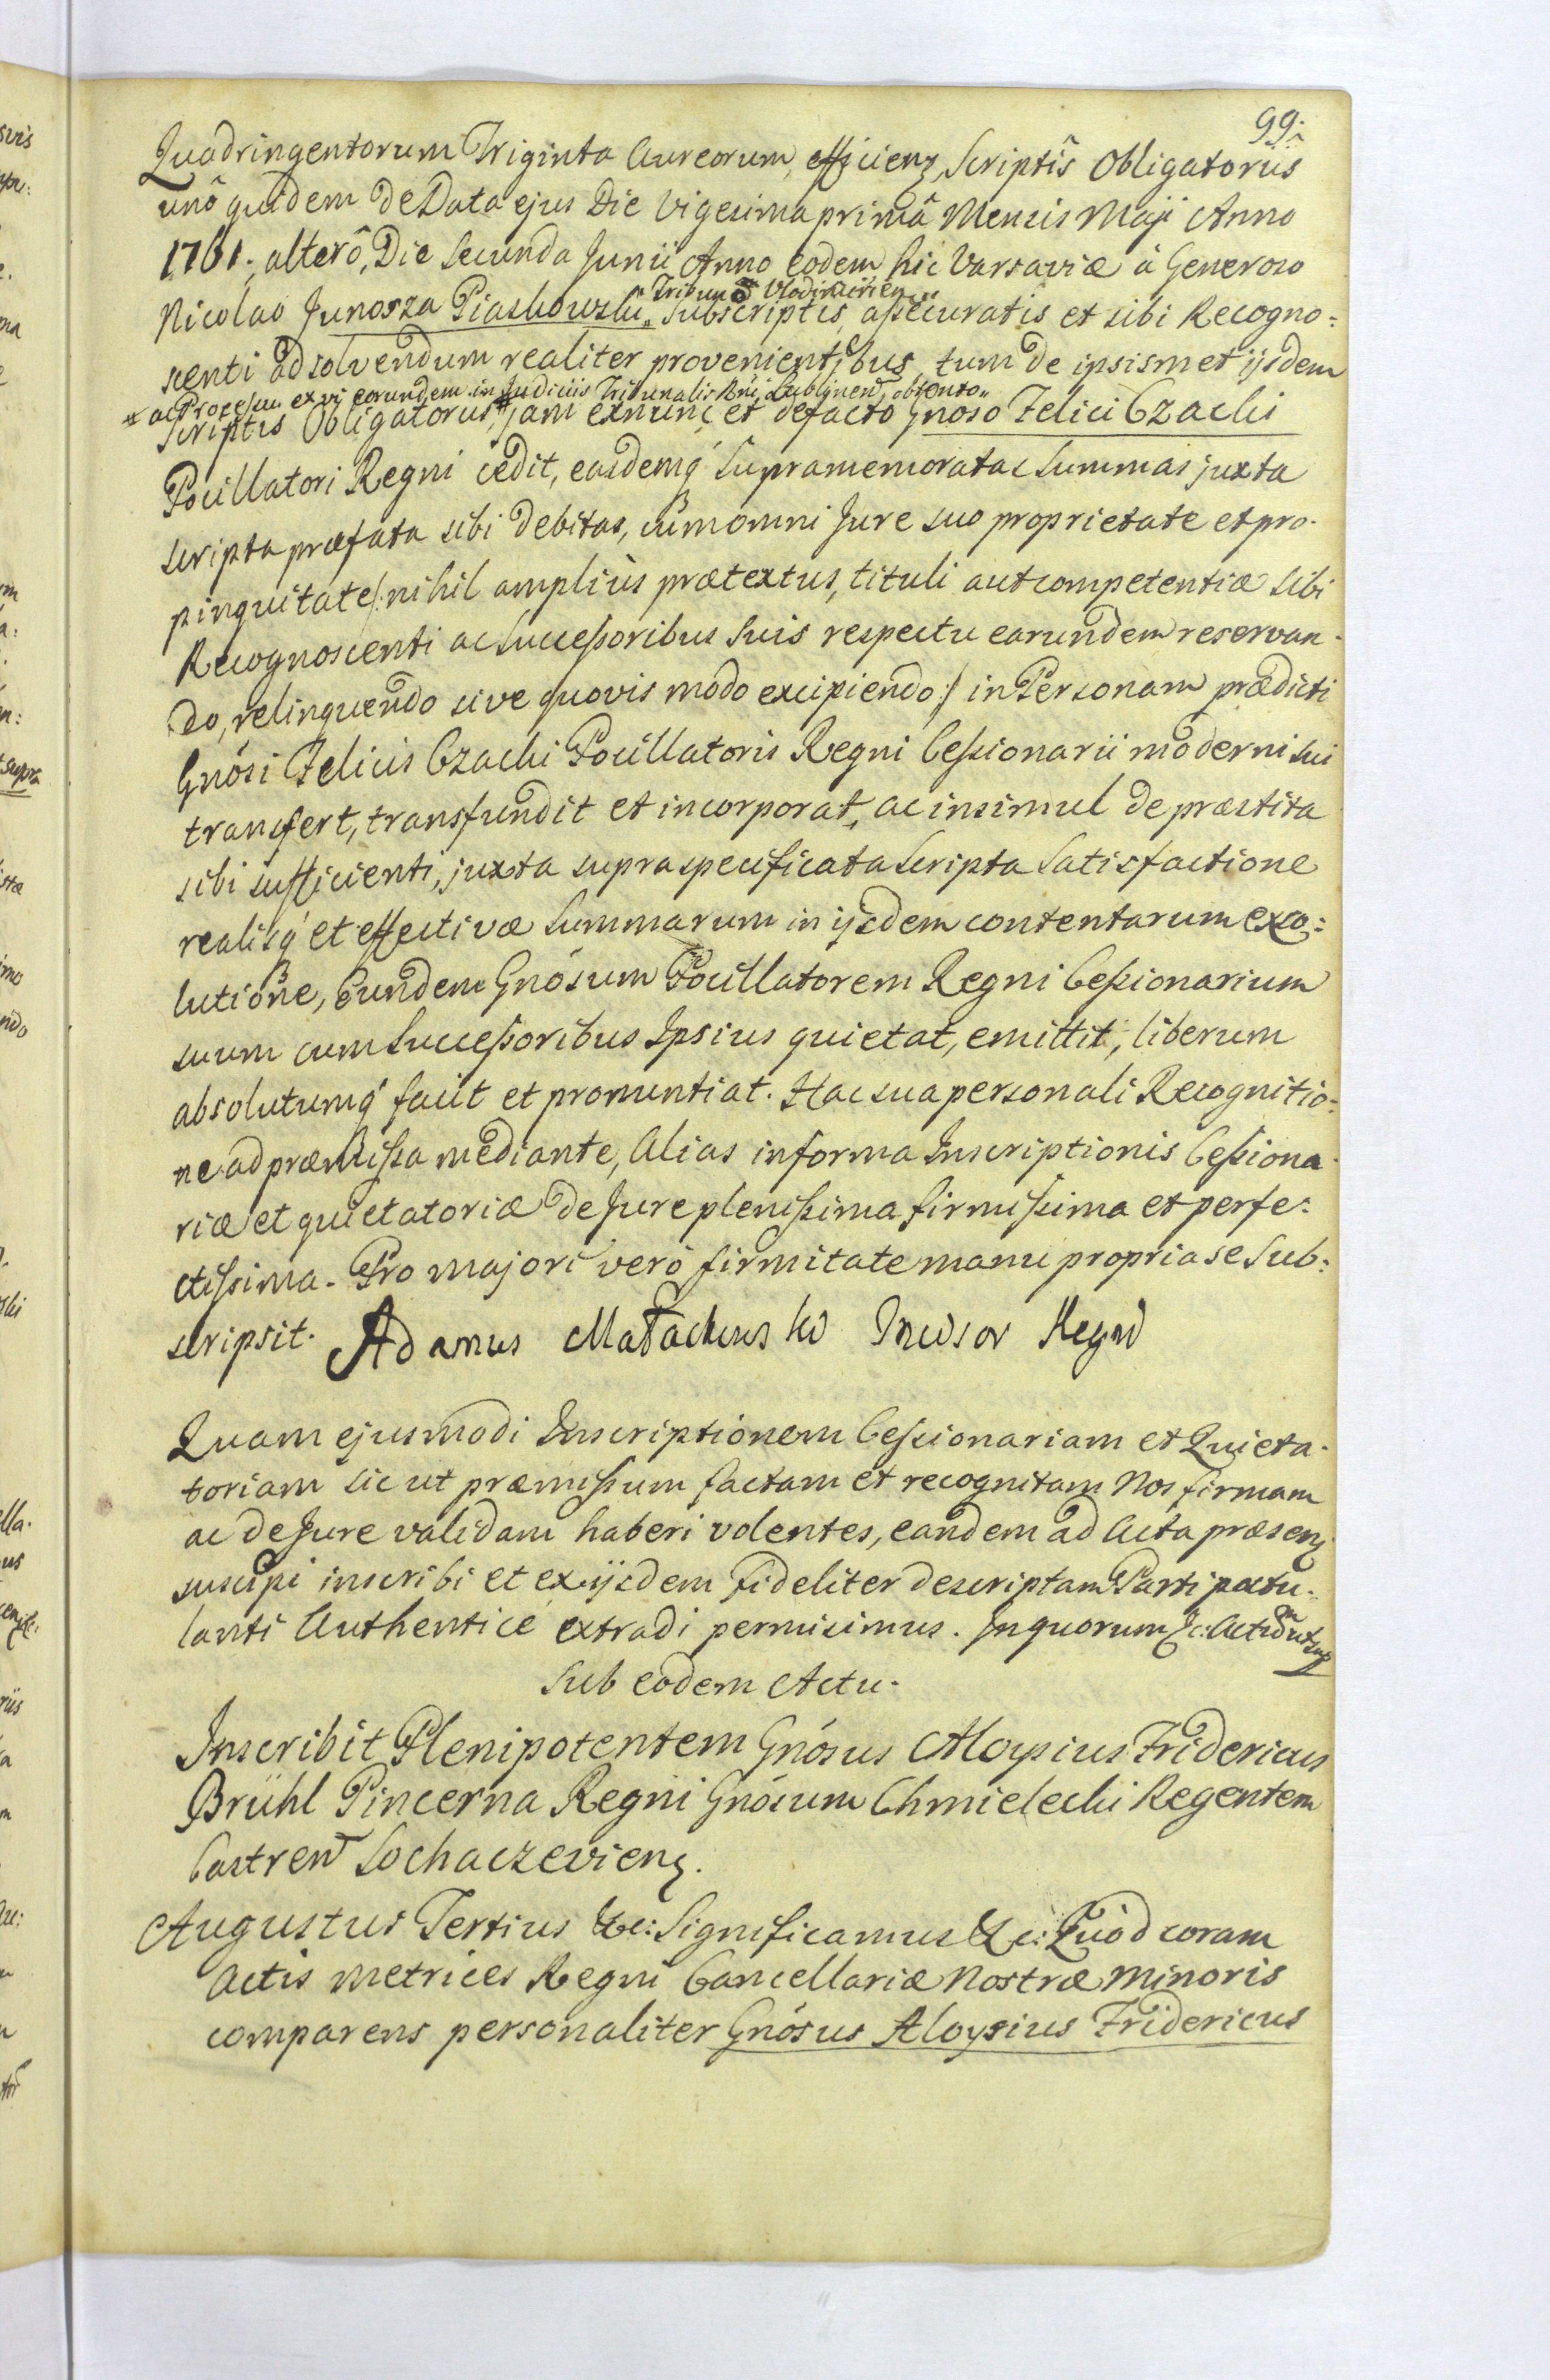 99.
Quadringentorum Triginta Aureorum, efficienȝ, Scriptîs Obligatoriîs
unô quidem de Data ejus Die Vigesima primâ Mensis Maji Anno
1761. alterô, Die Secunda Junii Anno eodem hic Varsaviæ à Generoso
„Tribuno Vlodimirien„
Nicolao Junosza Piaskowski„ Subscriptis, assecuratis et sibi Recogno:
scenti ad solvendum realiter provenientibus, tum de ipsismet ijsdem
* ac Processu ex vi eorundem in Judiciis Tribunalis Rni Lublinen̄, obtento„
Scriptis Obligatoriis,* jam exnunc et defacto Gnoso Felici Czacki
Pocillatori Regni cedit, easdemq́ supramemoratas Summas juxta
scripta præfata sibi debitas, cum omni Jure suo proprietate et pro-
pinquitate /: nihil amplius prætextus, tituli aut competentiæ sibi
Recognoscenti ac Successoribus Suis respectu earundem reservan-
do, relinquendo sive quovis modo excipiendo :/ in Personam prædicti
Gnósi Felicis Czacki Pocillatoris Regni Cessionarii moderni sui
transfert, transfundit et incorporat, ac insimul de præstita
sibi sufficienti, juxta supraspecificata Scripta Satisfactione
realisq́ et effectivæ Summarum in ijsdem contentarum exso:
lutione, Eundem Gnósum Pocillatorem Regni Cessionarium
suum cum Successoribus Ipsius quietat, emittit, liberum
absolutumq́ facit et pronuntiat. Hac sua personali Recognitio:
ne ad præmissa mediante, Alias in forma Inscriptionis Cessiona-
riæ et quietatoriæ de Jure plenissima firmissima et perfe:
ctissima. Pro majori verò firmitate manu propria se Sub:
scripsit. Adamus Małachowski Incisor Regni
Quam ejusmodi Inscriptionem Cessionariam et Quieta-
toriam sic ut præmissum factam et recognitam Nos firmam
ac de Jure validam haberi volentes, eandem ad Acta præsenȝ
suscipi inscribi et ex ijsdem fideliter descriptam Parti postu-
lanti Authentice extradi permisimus. In quorum &c: Actum ut sup
Sub eodem Actu.
Inscribit Plenipotentem Gnósus Aloysius Fridericus
Brühl Pincerna Regni Gnósum Chmielecki Regentem
Castren̄ Sochaczevienȝ.
Augustus Tertius &c: Significamus &c: Quòd coram
Actis Metrices Regni Cancellariæ Nostræ Minoris
comparens personaliter Gnósus Aloysius Fridericus